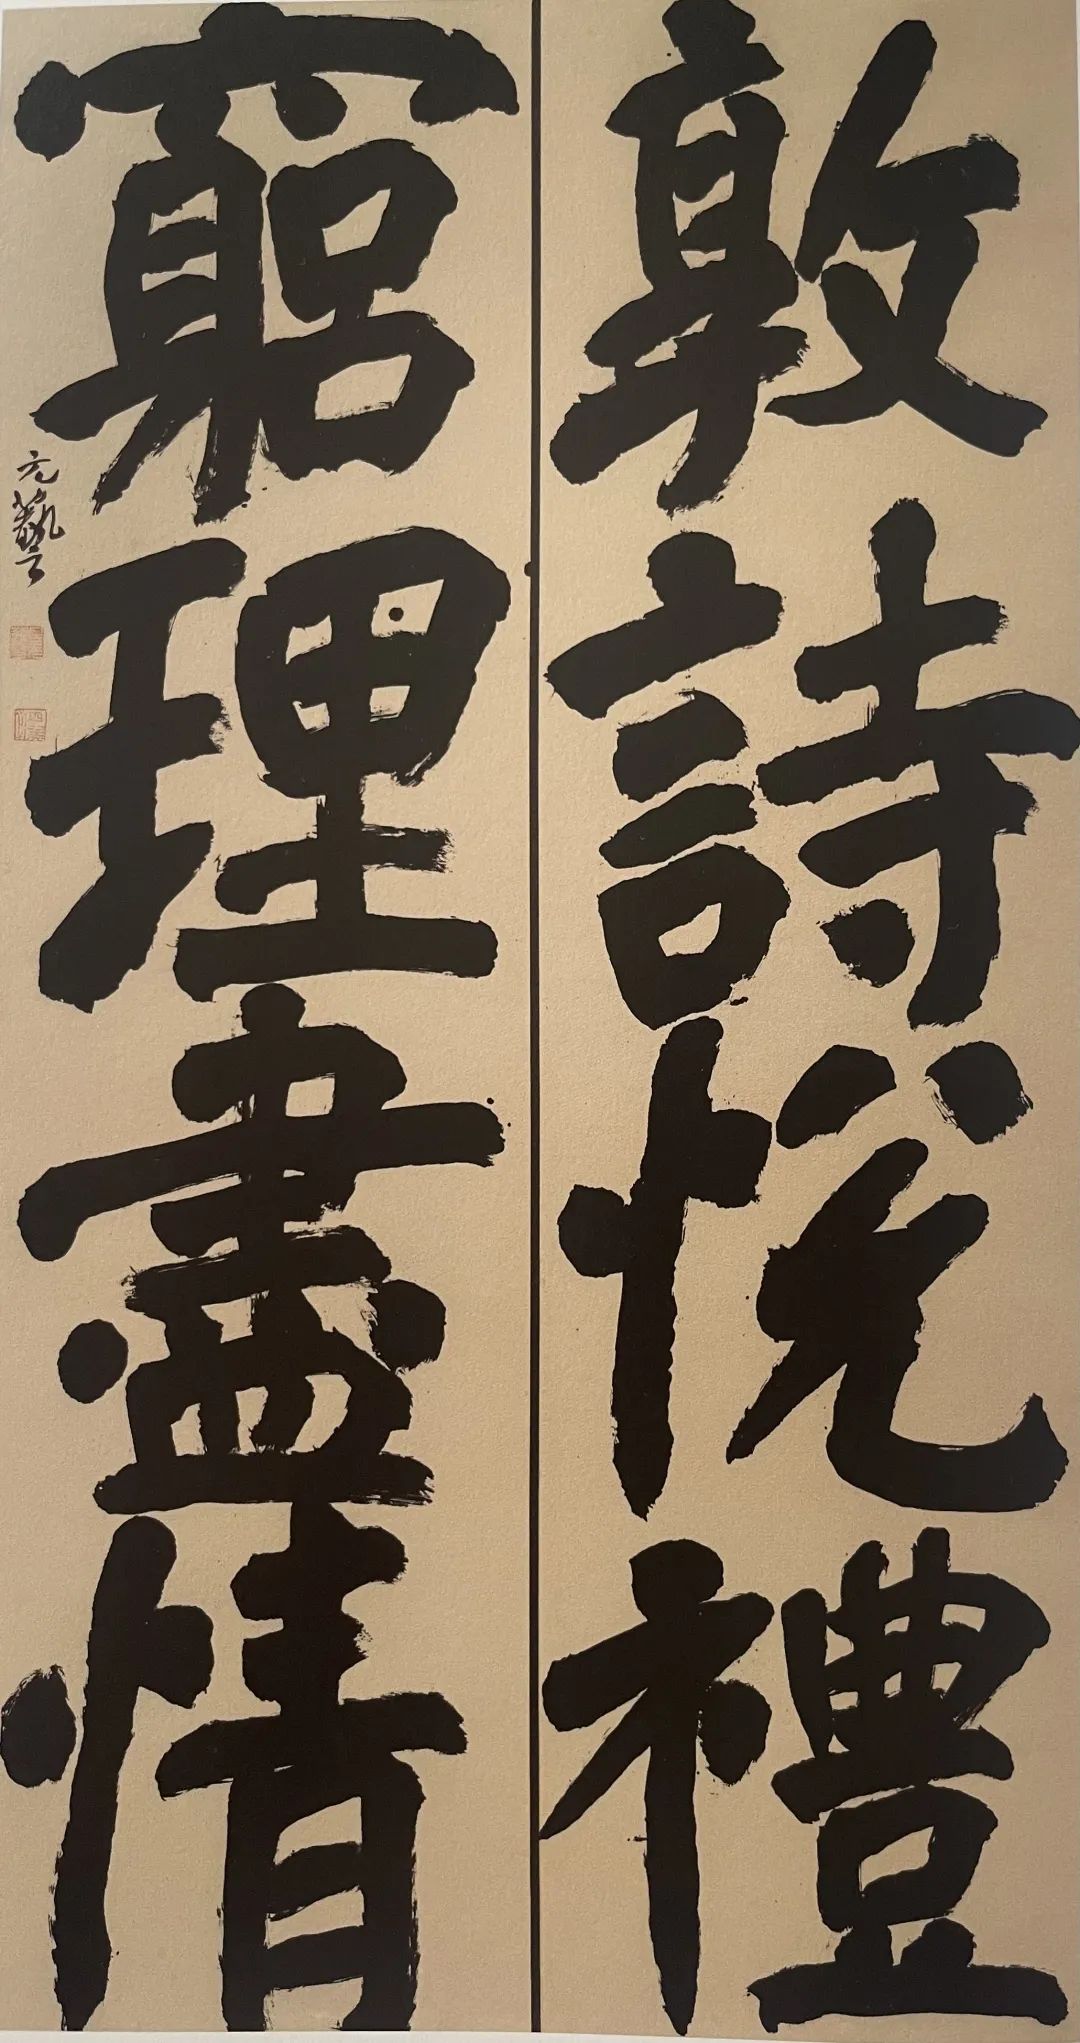 敦詩悅禮
窮理盡情